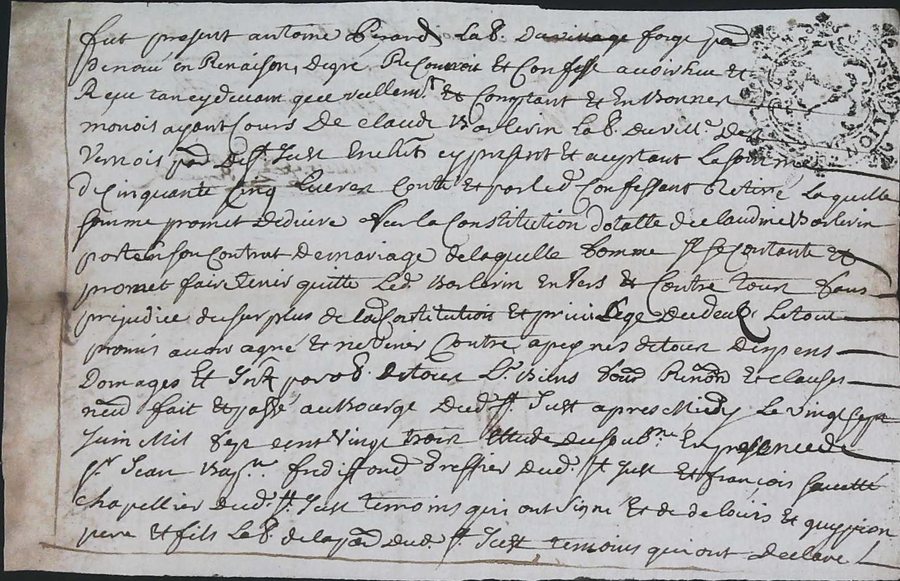 fut present antoine Perard La8. Du village forge par
Renaison, De gré Reconnoit et Confesse avoir heu et
Reçu tan cy devant que reellem.t Et Comptant et En Bonne
monois ayant Cours De claude Barlerin La8. Du vill.e De
Vernois par.e De St. Just Enchlt cy present et aceptant La som
De Cinquante Cinq Livres Conte et par led. Confessant Retirée Laquelle
somme promet Deduire sur la Constitution dotalle de claudine Barlerin
porté en son Contrat De mariage de laquelle somme Il se Contante et
promet faire tenir quitte Led. Barlerin Envers Et Contre tous Sans
prejudice du surplus de la Constitution et privilege Le tout
promis avoir agré et ne venir Contre a peynes de tous Depens
Domages Et Int. par ob. De tous Ses Biens Soum. Renon. Et clauses
fait et passé au Bourg Dud. St. Just apres Midy Le vingt sept
Juin Mil Sept cent Vingt trois Etude du soub.ne En presence de
Sr. Jean Greffier dud. St Just Et françois
chapellier Dud. St. Just temoins qui ont signé Et de Et
pere et fils La8. de la par. dud. St. Just temoins qui ont Declaré